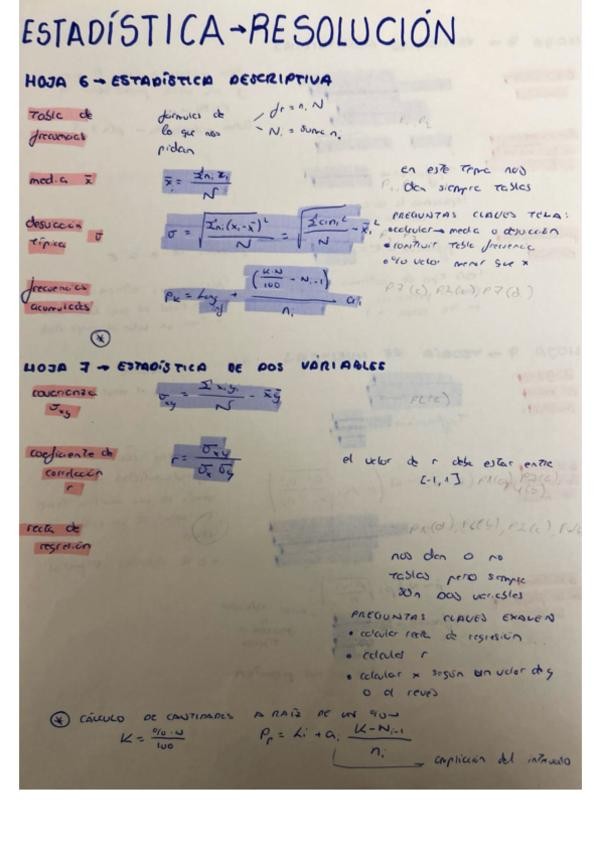 ESTADÍSTICA→RESOLUCIÓN
HOJA 6 → ESTADÍSTICA DESCRIPTIVA
Tabla de frecuencias
fórmulas de lo que nos pidan
N_i = suma n_i
media x̄
x̄ = Σn_i x_i / N
en este tema nos dan siempre tablas
desviación típica σ
σ = √(Σn_i(x_i-x̄)² / N) =
PREGUNTAS CLAVES
• calcular → media o desviación
• construir tabla frecuencia
• % valor menor que x
frecuencias acumuladas
P_K = + ((K·N/100 - N_i-1) / n_i) · a_i
P2(c), P2(d)
*
HOJA 7 → ESTADÍSTICA DE DOS VARIABLES
covarianza σ_xy
σ_xy = Σ x_i y_i / N - x̄ȳ
coeficiente de correlación r
r = σ_xy / σ_x σ_y
el valor de r debe estar entre
[-1, 1]
recta de regresión
nos dan o no
tablas pero siempre
son DOS variables
PREGUNTAS CLAVES EXAMEN
• calcular recta de regresión
• calcular r
• calcular x según un valor de y
o al revés
* CÁLCULO DE CANTIDADES A RAÍZ DE UN %
K = %·N / 100
P_p = L_i + a_i (K - N_i-1) / n_i
amplitud del intervalo